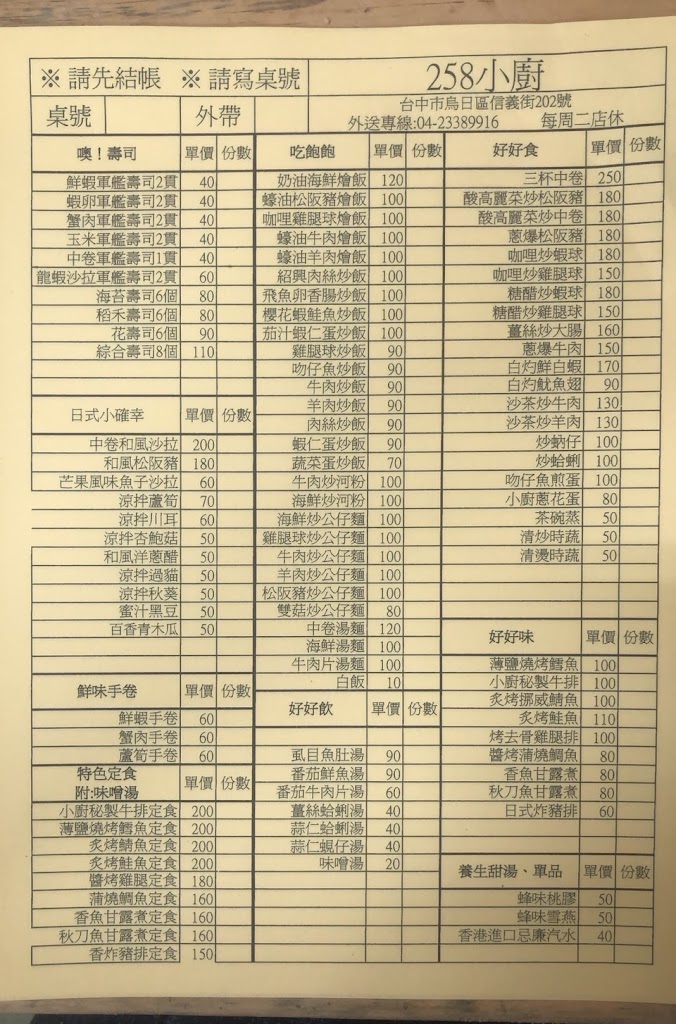 ※ 請先結帳 ※ 請寫桌號
258小廚
桌號 外帶
台中市烏日區信義街202號
外送專線:04-23389916 每周二店休
噢！壽司 單價 份數
鮮蝦軍艦壽司2貫 40
蝦卵軍艦壽司2貫 40
蟹肉軍艦壽司2貫 40
玉米軍艦壽司2貫 40
中卷軍艦壽司1貫 40
龍蝦沙拉軍艦壽司2貫 60
海苔壽司6個 80
稻禾壽司6個 80
花壽司6個 90
綜合壽司8個 110
日式小確幸 單價 份數
中卷和風沙拉 200
和風松阪豬 180
芒果風味魚子沙拉 60
涼拌蘆筍 70
涼拌川耳 60
涼拌杏鮑菇 50
和風洋蔥醋 50
涼拌過貓 50
涼拌秋葵 50
蜜汁黑豆 50
百香青木瓜 50
鮮味手卷 單價 份數
鮮蝦手卷 60
蟹肉手卷 60
蘆筍手卷 60
特色定食
附:味噌湯 單價 份數
小廚秘製牛排定食 200
薄鹽燒烤鱈魚定食 200
炙烤鯖魚定食 200
炙烤鮭魚定食 200
醬烤雞腿定食 180
蒲燒鯛魚定食 160
香魚甘露煮定食 160
秋刀魚甘露煮定食 160
香炸豬排定食 150
吃飽飽 單價 份數
奶油海鮮燴飯 120
蠔油松阪豬燴飯 100
咖哩雞腿球燴飯 100
蠔油牛肉燴飯 100
蠔油羊肉燴飯 100
紹興肉絲炒飯 100
飛魚卵香腸炒飯 100
櫻花蝦鮭魚炒飯 100
茄汁蝦仁蛋炒飯 100
雞腿球炒飯 90
吻仔魚炒飯 90
牛肉炒飯 90
羊肉炒飯 90
肉絲炒飯 90
蝦仁蛋炒飯 90
蔬菜蛋炒飯 70
牛肉炒河粉 100
海鮮炒河粉 100
海鮮炒公仔麵 100
雞腿球炒公仔麵 100
牛肉炒公仔麵 100
羊肉炒公仔麵 100
松阪豬炒公仔麵 100
雙菇炒公仔麵 80
中卷湯麵 120
海鮮湯麵 100
牛肉片湯麵 100
白飯 10
好好飲 單價 份數
虱目魚肚湯 90
番茄鮮魚湯 90
番茄牛肉片湯 60
薑絲蛤蜊湯 40
蒜仁蛤蜊湯 40
蒜仁蜆仔湯 40
味噌湯 20
好好食 單價 份數
三杯中卷 250
酸高麗菜炒松阪豬 180
酸高麗菜炒中卷 180
蔥爆松阪豬 180
咖哩炒蝦球 180
咖哩炒雞腿球 150
糖醋炒蝦球 180
糖醋炒雞腿球 150
薑絲炒大腸 160
蔥爆牛肉 150
白灼鮮白蝦 170
白灼魷魚翅 90
沙茶炒牛肉 130
沙茶炒羊肉 130
炒蚋仔 100
炒蛤蜊 100
吻仔魚煎蛋 100
小廚蔥花蛋 80
茶碗蒸 50
清炒時蔬 50
清燙時蔬 50
好好味 單價 份數
薄鹽燒烤鱈魚 100
小廚秘製牛排 100
炙烤挪威鯖魚 100
炙烤鮭魚 110
烤去骨雞腿排 100
醬烤蒲燒鯛魚 80
香魚甘露煮 80
秋刀魚甘露煮 80
日式炸豬排 60
養生甜湯、單品 單價 份數
蜂味桃膠 50
蜂味雪燕 50
香港進口忌廉汽水 40